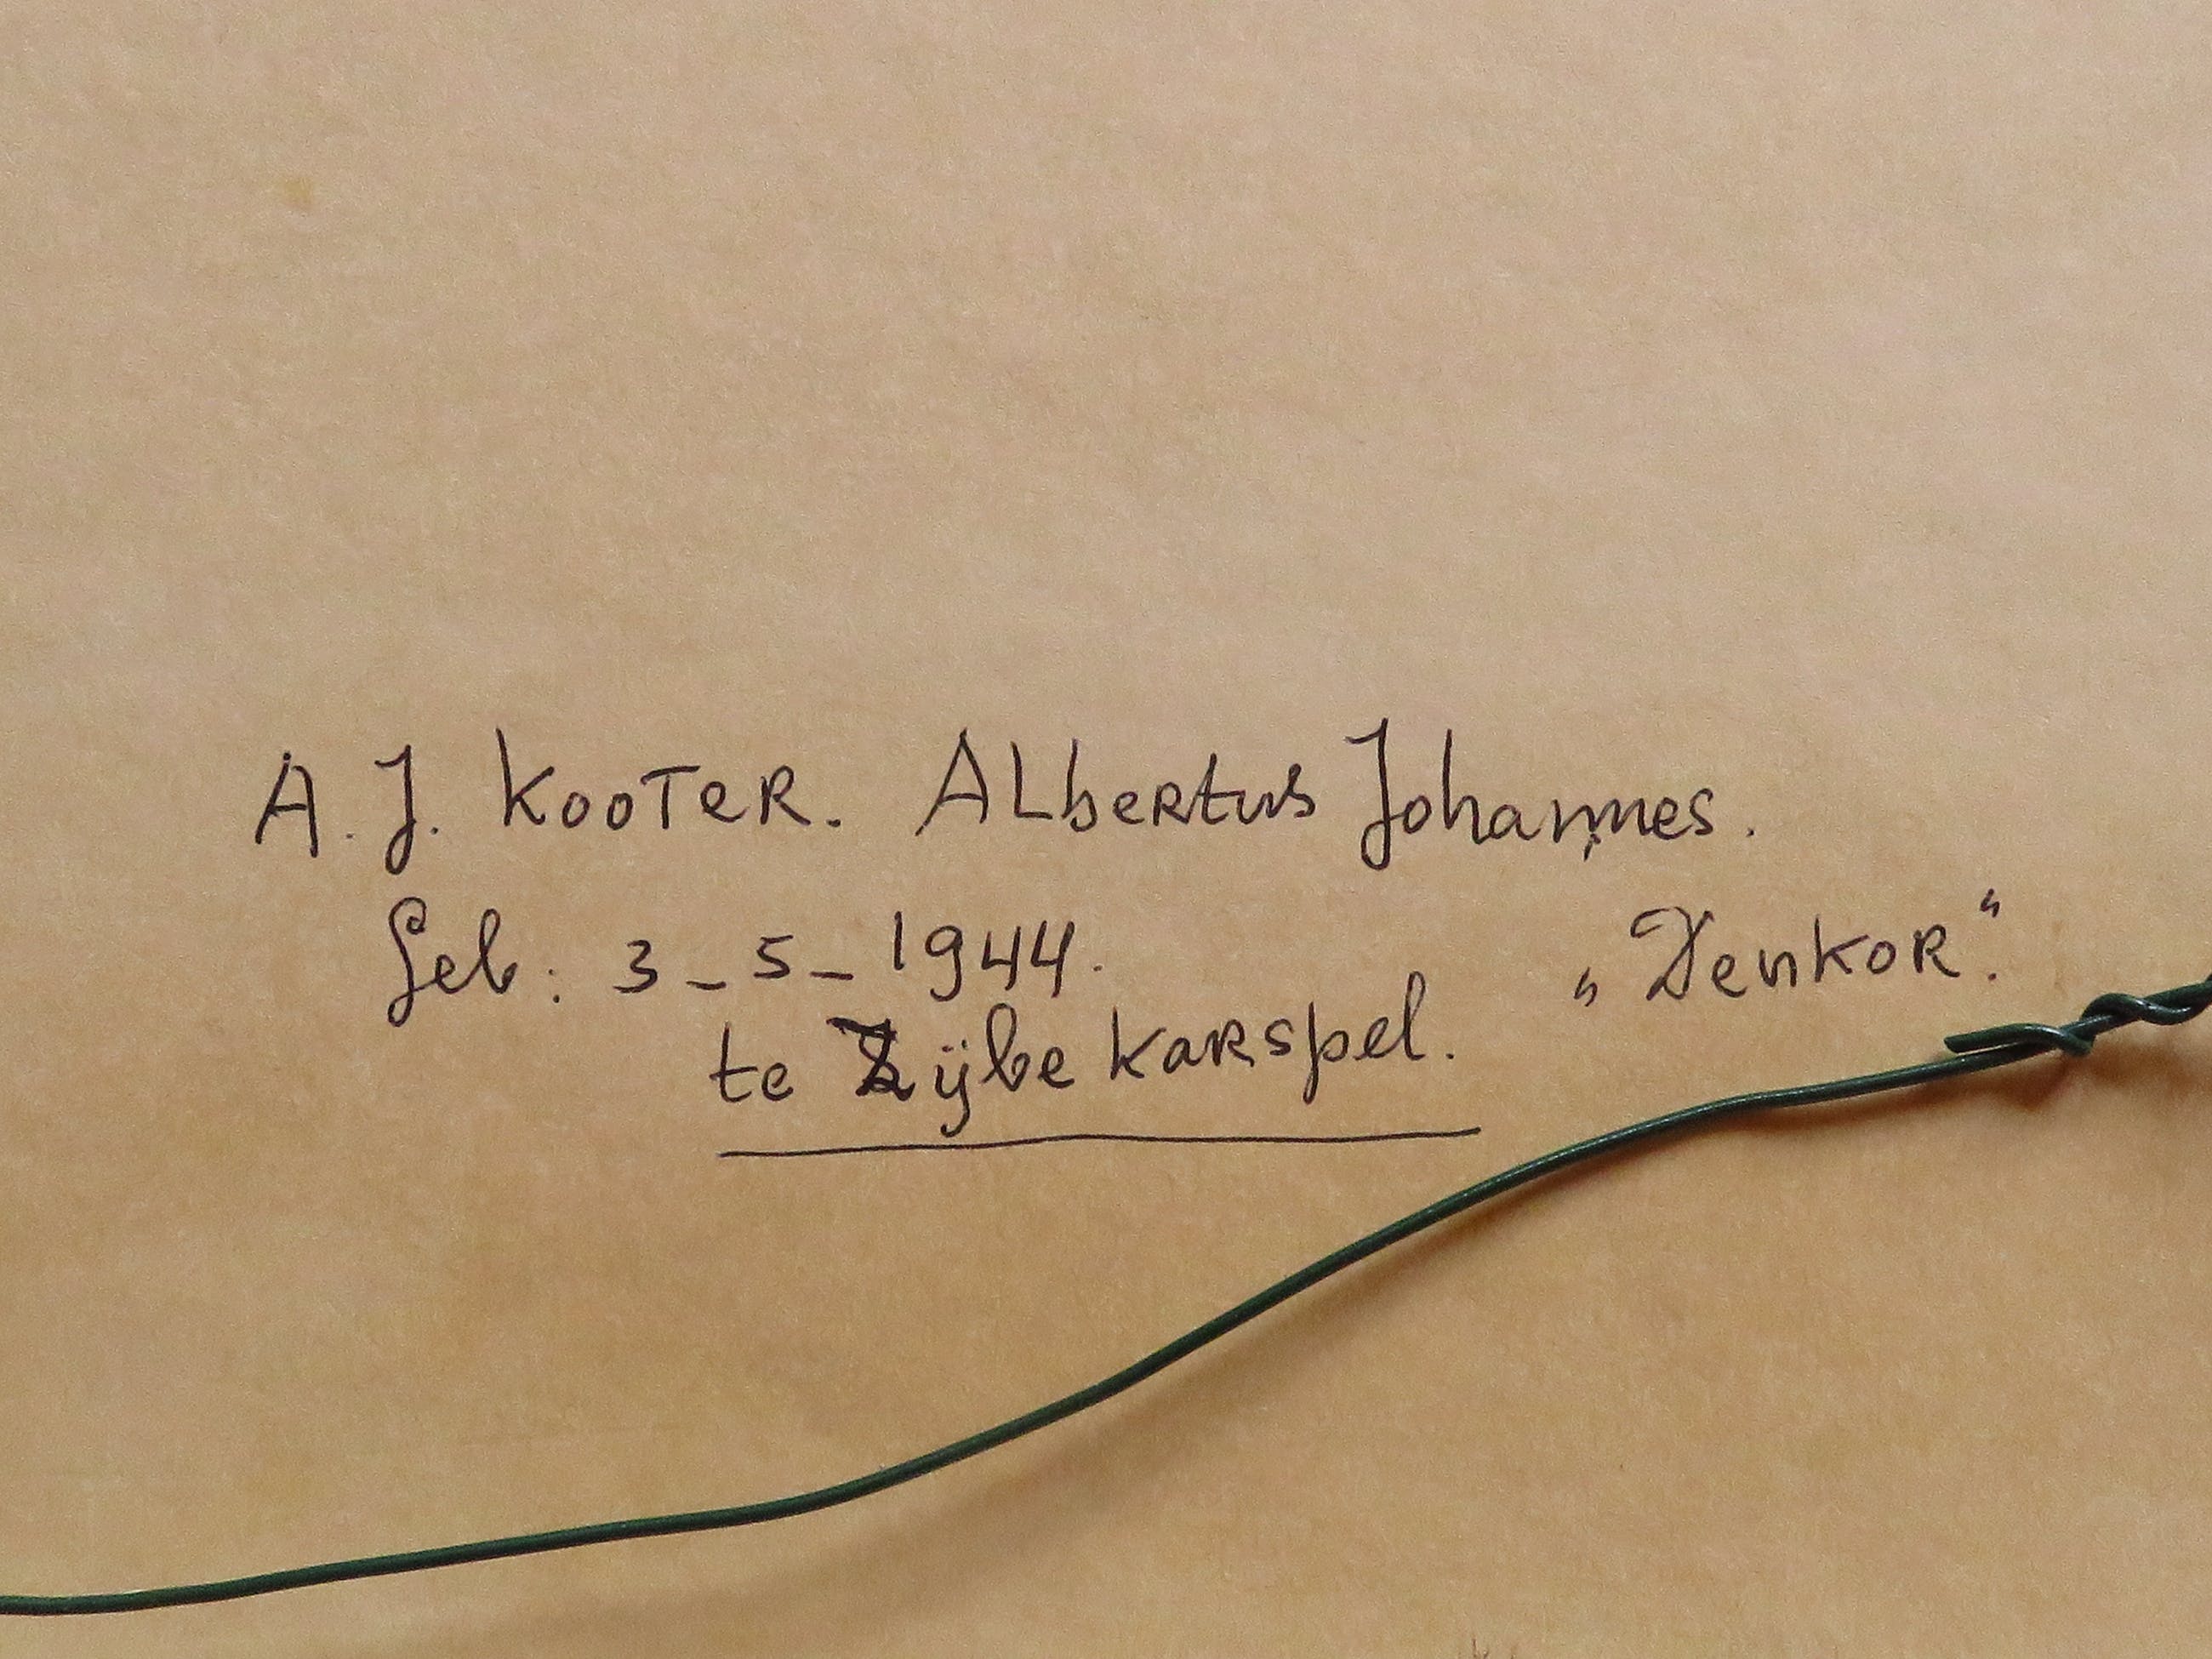 A. J. KOOTER. ALbertus Johannes.
Geb: 3-5-1944. „Denkor".
te Zijbekarspel.